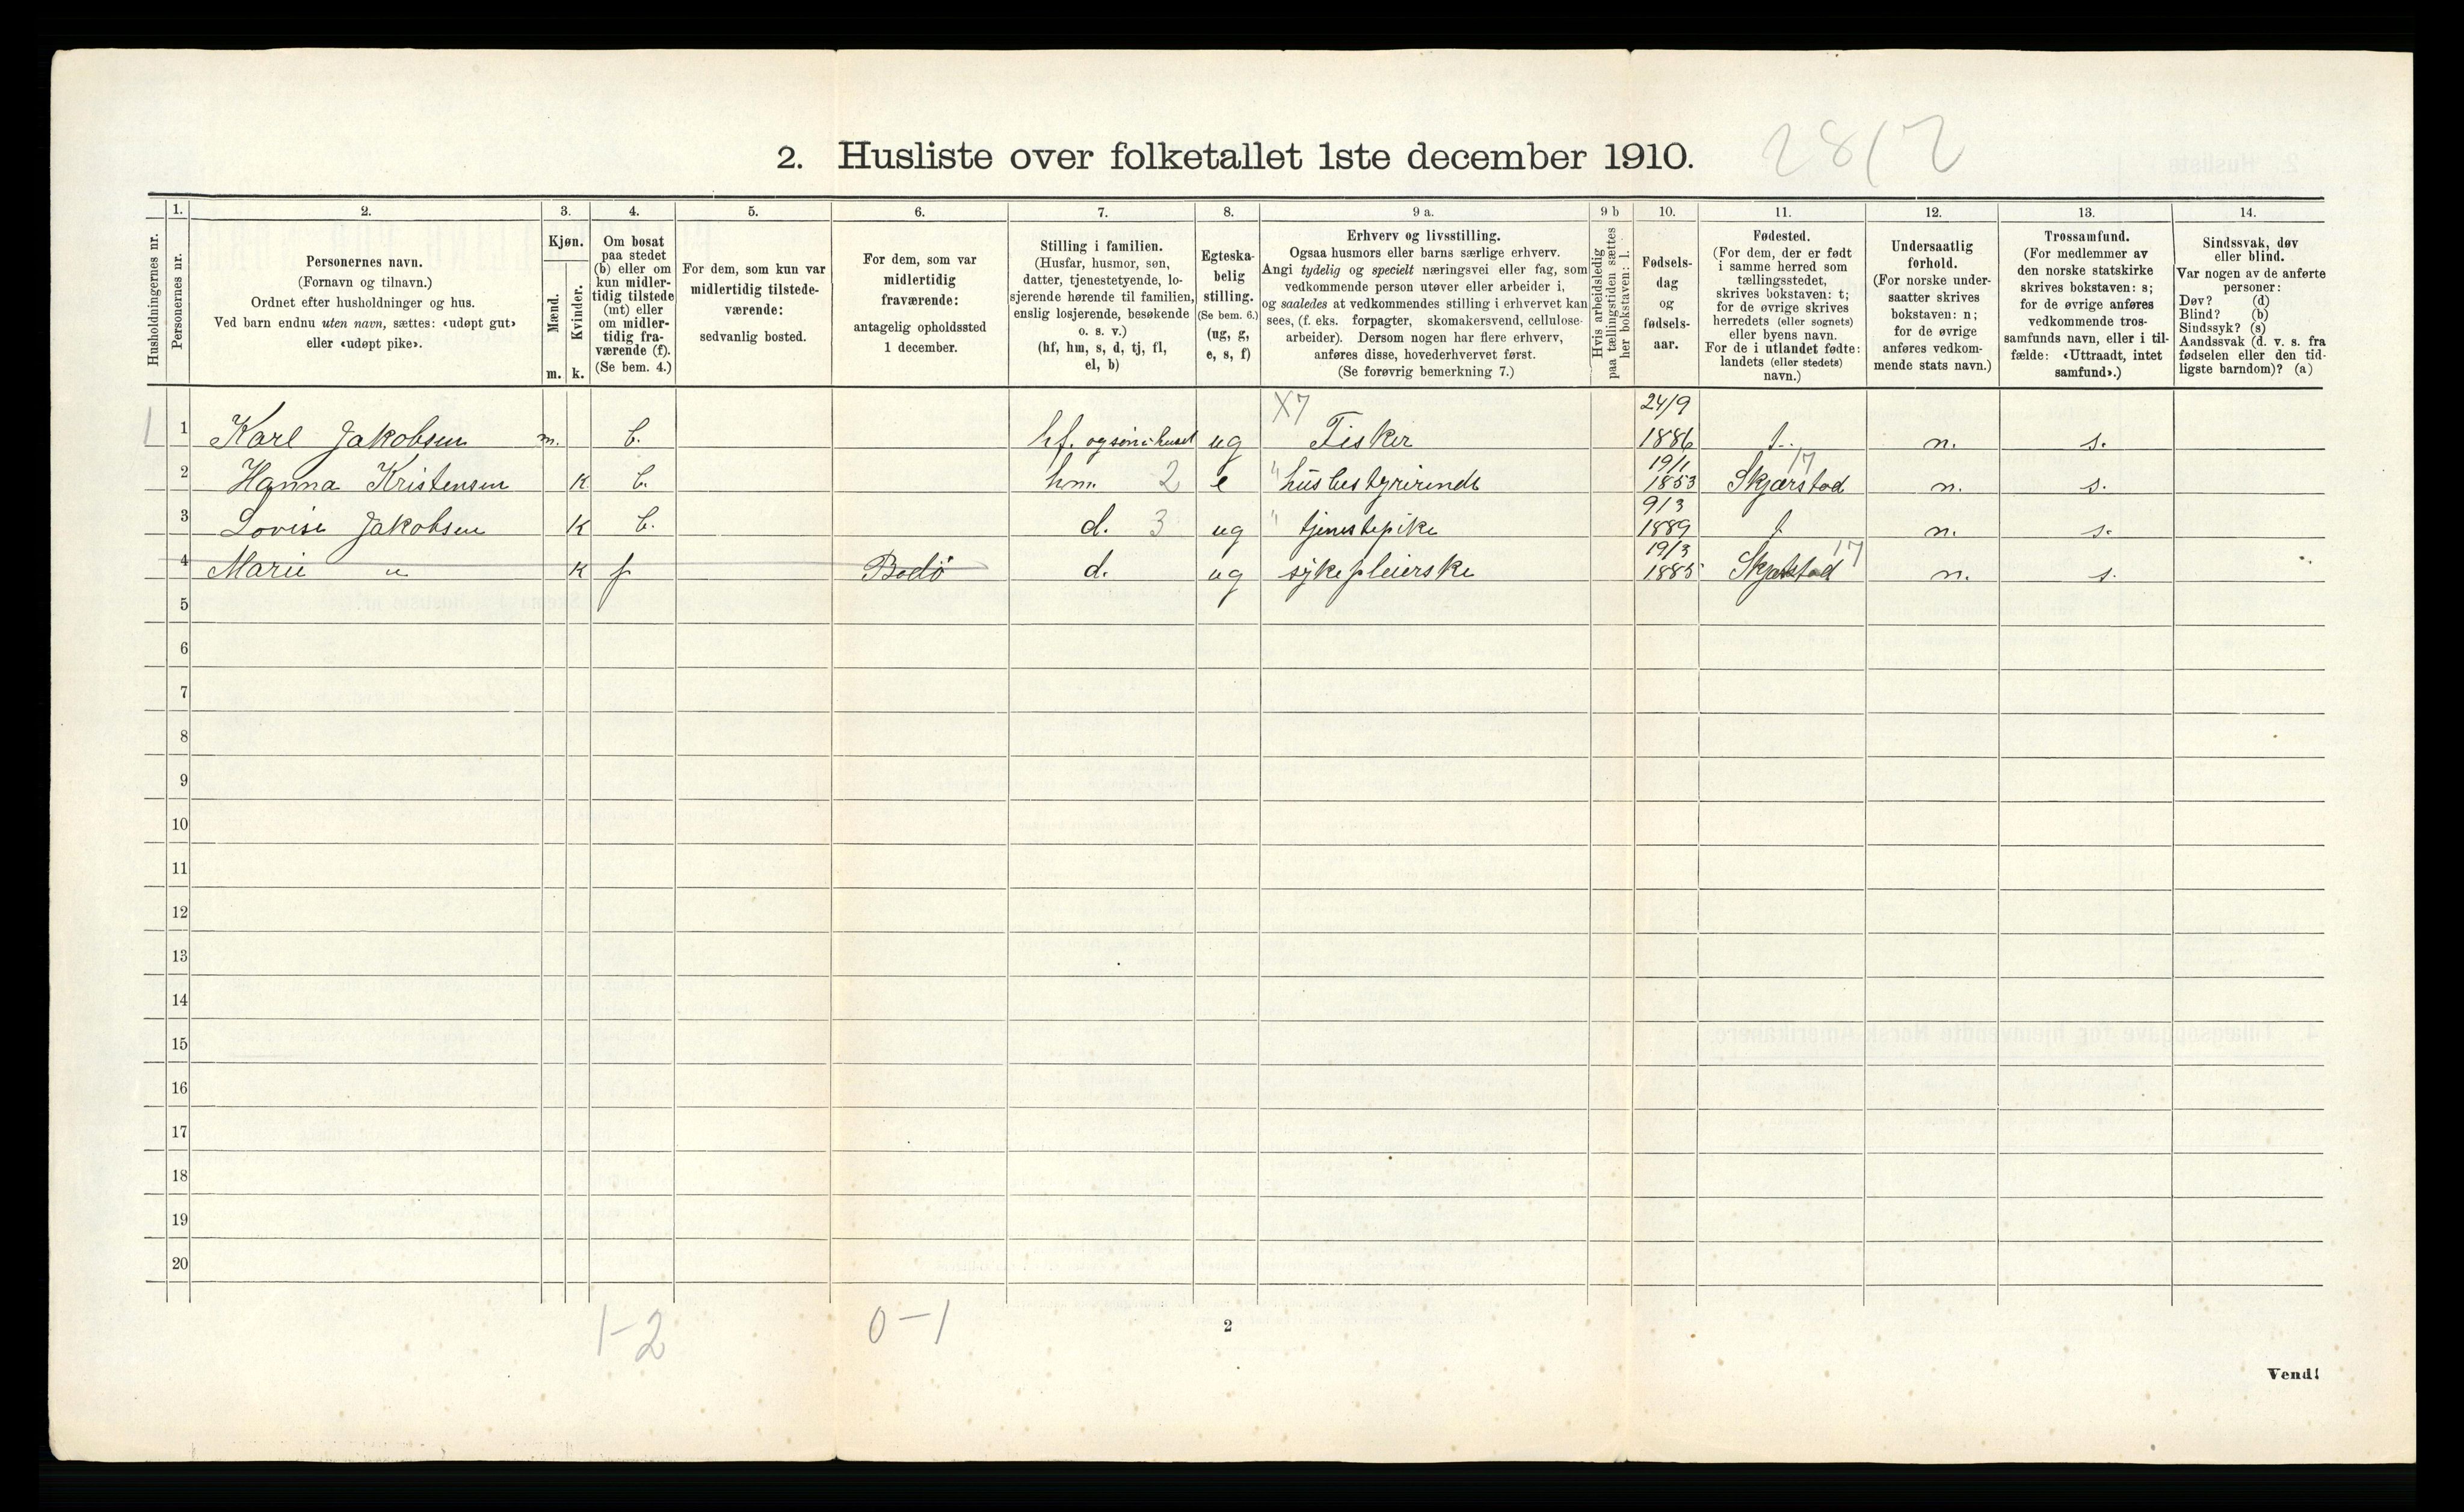 2. Husliste over folketallet 1ste december 1910. 28/2
Husholdningernes nr.
1. Personernes nr.
2. Personernes navn.
(Fornavn og tilnavn.)
Ordnet efter husholdninger og hus.
Ved barn endnu uten navn, sættes: «udøpt gut»
eller «udøpt pike».
3. Kjøn.
Mænd. m.
Kvinder. k.
4. Om bosat
paa stedet
(b) eller om
kun midler-
tidig tilstede
(mt) eller
om midler-
tidig fra-
værende (f).
(Se bem. 4.)
5. For dem, som kun var
midlertidig tilstede-
værende:
sedvanlig bosted.
6. For dem, som var
midlertidig
fraværende:
antagelig opholdssted
1 december.
7. Stilling i familien.
(Husfar, husmor, søn,
datter, tjenestetyende, lo-
sjerende hørende til familien,
enslig losjerende, besøkende
o. s. v.)
(hf, hm, s, d, tj, fl,
el, b)
8. Egteska-
belig
stilling.
(Se bem. 6.)
(ug, g,
e, s, f)
9 a. Erhverv og livsstilling.
Ogsaa husmors eller barns særlige erhverv.
Angi tydelig og specielt næringsvei eller fag, som
vedkommende person utøver eller arbeider i,
og saaledes at vedkommendes stilling i erhvervet kan
sees, (f. eks. forpagter, skomakersvend, cellulose-
arbeider). Dersom nogen har flere erhverv,
anføres disse, hovederhvervet først.
(Se forøvrig bemerkning 7.)
9 b Hvis arbeidsledig
paa tællingstiden sættes
her bokstaven: l.
10. Fødsels-
dag
og
fødsels-
aar.
11. Fødested.
(For dem, der er født
i samme herred som
tællingsstedet,
skrives bokstaven: t;
for de øvrige skrives
herredets (eller sognets)
eller byens navn.
For de i utlandet fødte:
landets (eller stedets)
navn.)
12. Undersaatlig
forhold.
(For norske under-
saatter skrives
bokstaven: n;
for de øvrige
anføres vedkom-
mende stats navn.)
13. Trossamfund.
(For medlemmer av
den norske statskirke
skrives bokstaven: s;
for de øvrige anføres
vedkommende tros-
samfunds navn, eller i til-
fælde: «Uttraadt, intet
samfund».)
14. Sindssvak, døv
eller blind.
Var nogen av de anførte
personer:
Døv? (d)
Blind? (b)
Sindssyk? (s)
Aandssvak (d. v. s. fra
fødselen eller den tid-
ligste barndom)? (a)
X7 24/9
1 1 Karl Jakobsen m. b. hf. og søn i huset ug Fisker 1886 t. n. s.
19/1 17
2 Hanna Kristensen k b. hm. 2 e " husbestyrerinde 1853 Skjærstad n. s.
9/3
3 Lovise Jakobsen k b. d. 3 ug " tjenestepike 1889 t n. s.
19/3 17
4 Marie " k f Bodø d. ug sykepleierske 1885 Skjærstad n. s.
5
6
7
8
9
10
11
12
13
14
15
16
17
18
19
20
1-2 0-1
2
Vend!